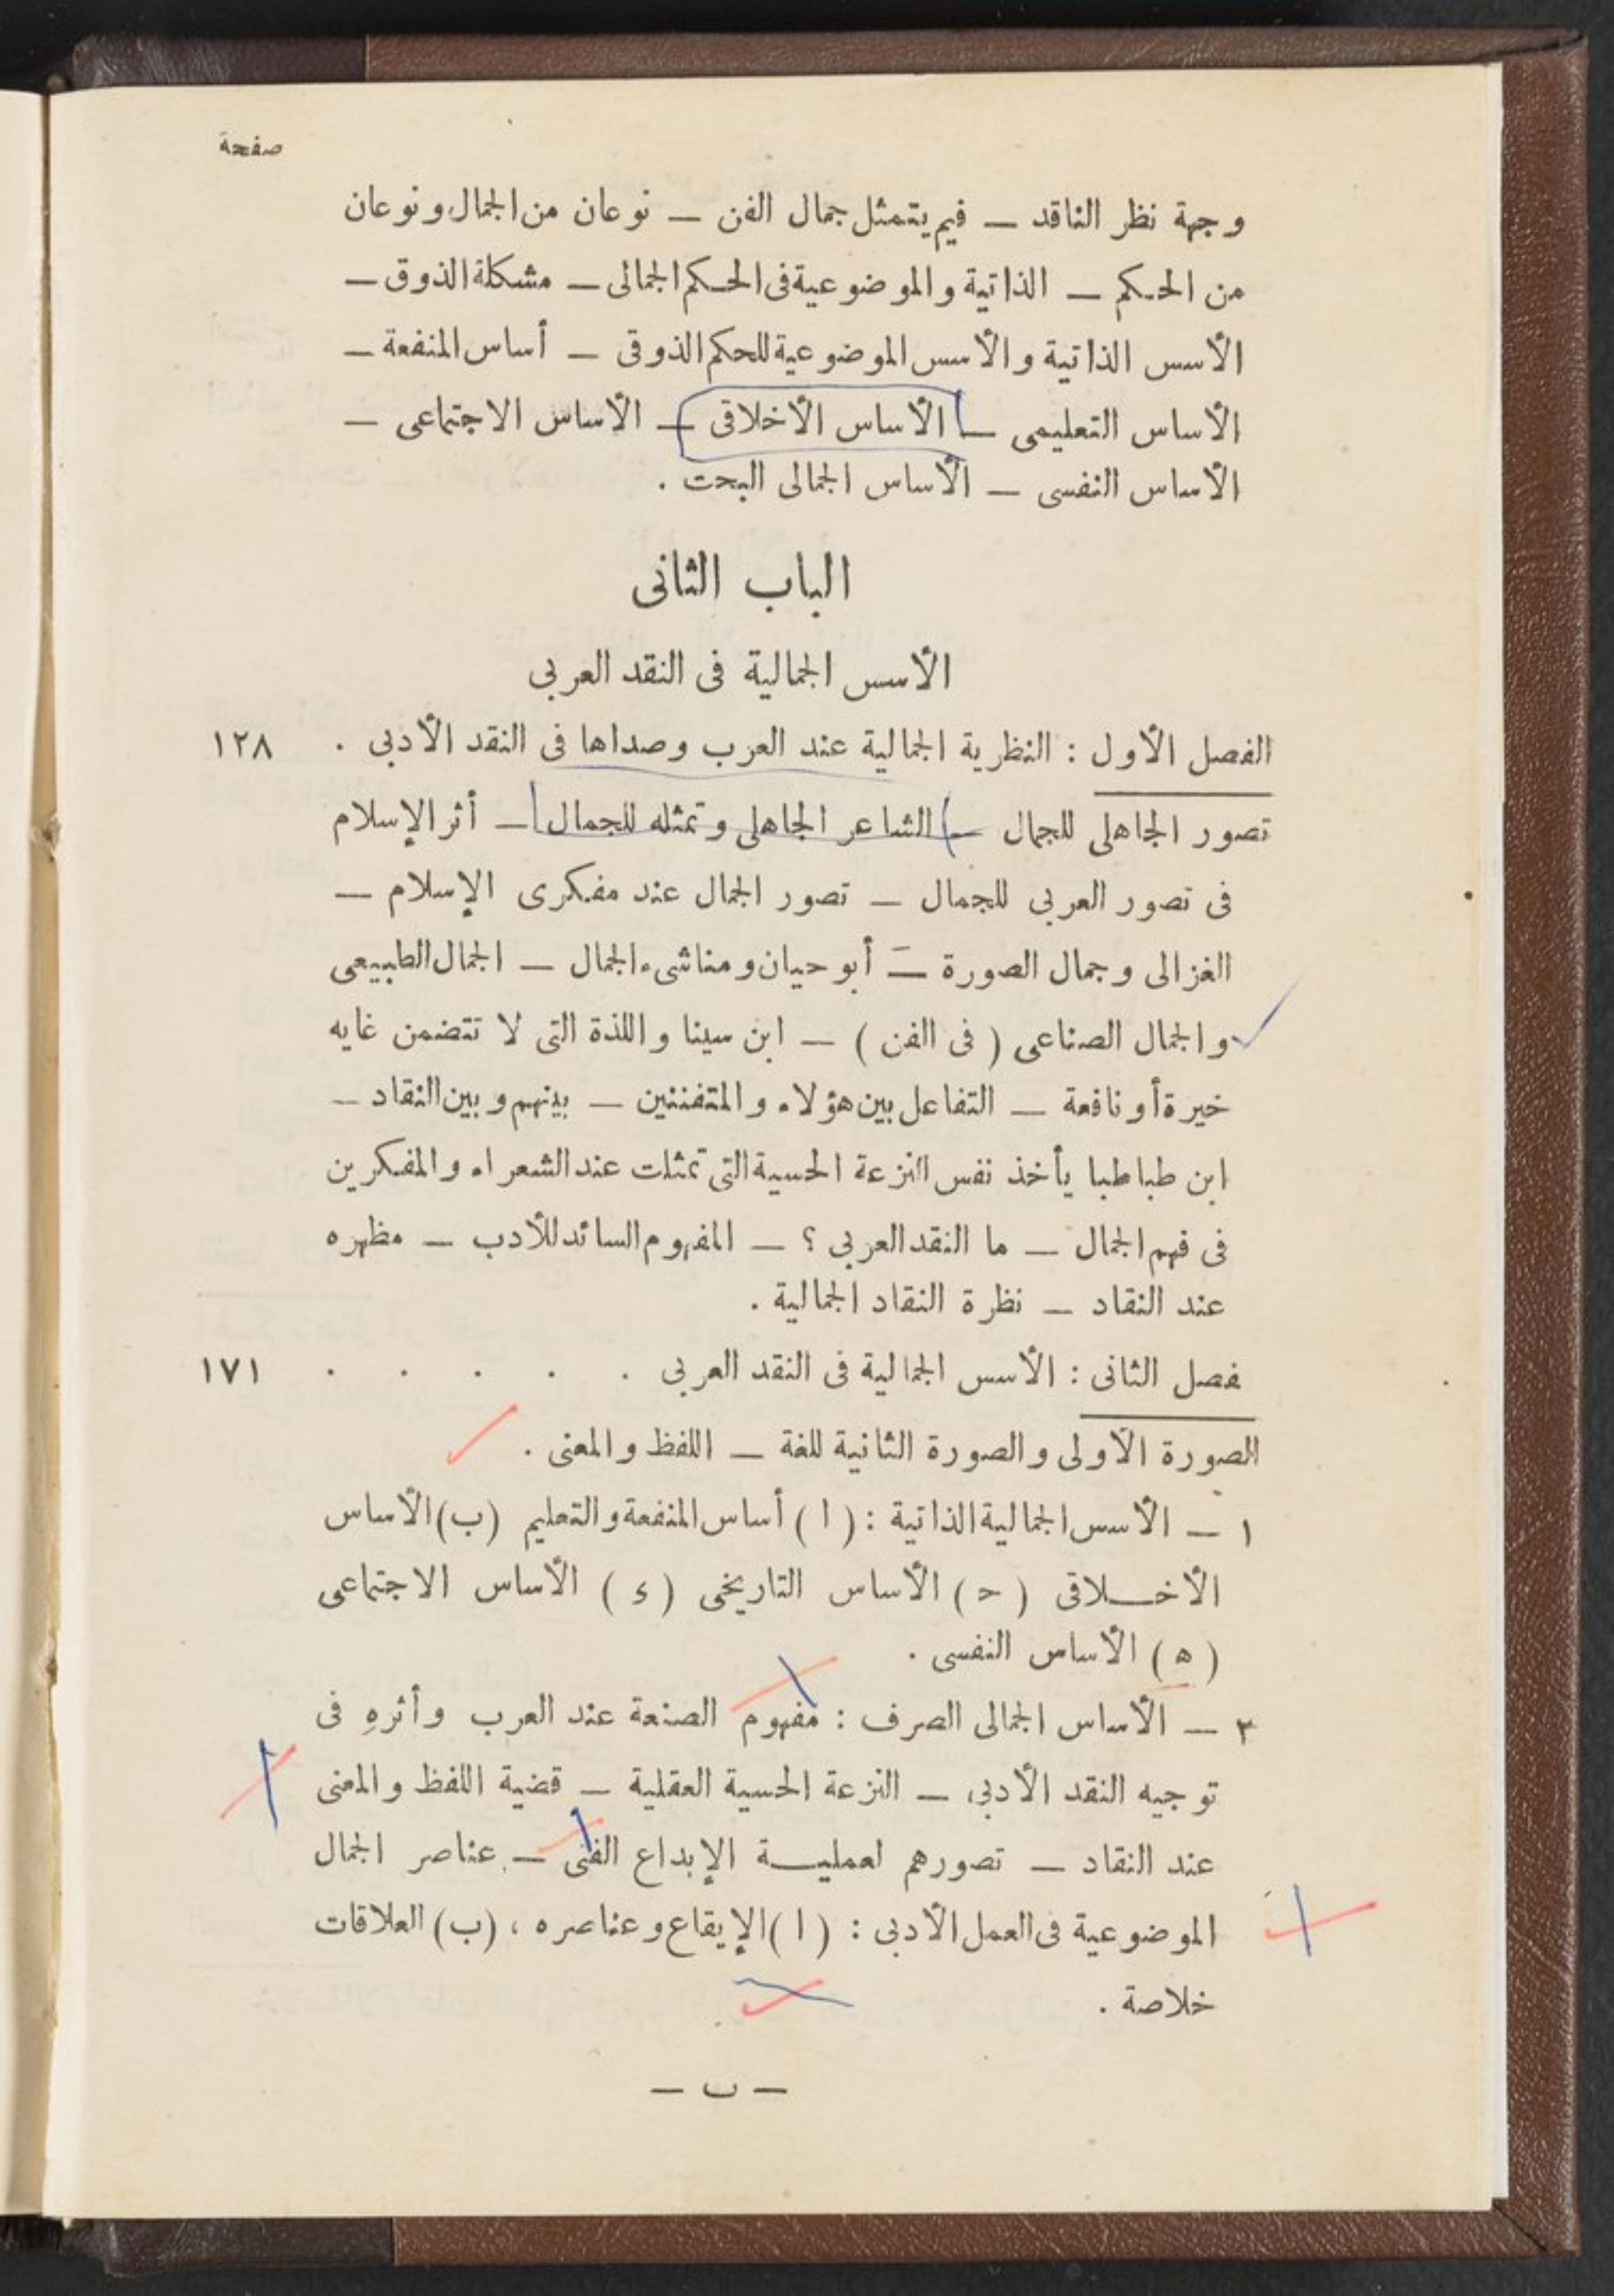 صفحة
وجهة نظر الناقد — فيم يتمثل جمال الفن — نوعان من الجمال ونوعان
من الحكم — الذاتية والموضوعية فى الحكم الجمالى — مشكلة الذوق —
الأسس الذاتية والأسس الموضوعية للحكم الذوقى — أساس المنفعة —
الأساس التعليمى — الأساس الأخلاقى — الأساس الاجتماعى —
الأساس النفسى — الأساس الجمالى البحت .
الباب الثانى
الأسس الجمالية فى النقد العربى
الفصل الأول : النظرية الجمالية عند العرب وصداها فى النقد الأدبى . ١٢٨
تصور الجاهلى للجمال — الشاعر الجاهلى وتمثله للجمال — أثر الإسلام
فى تصور العربى للجمال — تصور الجمال عند مفكرى الإسلام —
الغزالى وجمال الصورة — أبو حيان ومناشىء الجمال — الجمال الطبيعى
والجمال الصناعى ( فى الفن ) — ابن سينا واللذة التى لا تتضمن غايه
خيرة أو نافعة — التفاعل بين هؤلاء والمتفننين — بينهم وبين النقاد —
ابن طباطبا يأخذ نفس النزعة الحسية التى تمثلت عند الشعراء والمفكرين
فى فهم الجمال — ما النقد العربى ؟ — المفهوم السائد للأدب — مظهره
عند النقاد — نظرة النقاد الجمالية .
فصل الثانى : الأسس الجمالية فى النقد العربى . . . . . ١٧١
الصورة الأولى والصورة الثانية للغة — اللفظ والمعنى .
١ — الأسس الجمالية الذاتية : ( ا ) أساس المنفعة والتعليم (ب) الأساس
الأخـــلاقى ( حـ ) الأساس التاريخى ( د ) الأساس الاجتماعى
( هـ ) الأساس النفسى .
٢ — الأساس الجمالى الصرف : مفهوم الصنعة عند العرب وأثرهِ فى
توجيه النقد الأدبى — النزعة الحسية العقلية — قضية اللفظ والمعنى
عند النقاد — تصورهم لعمليـــة الإبداع الفنى — عناصر الجمال
الموضوعية فى العمل الأدبى : ( ا ) الإيقاع وعناصره ، (ب) العلاقات
خلاصة .
— ب —